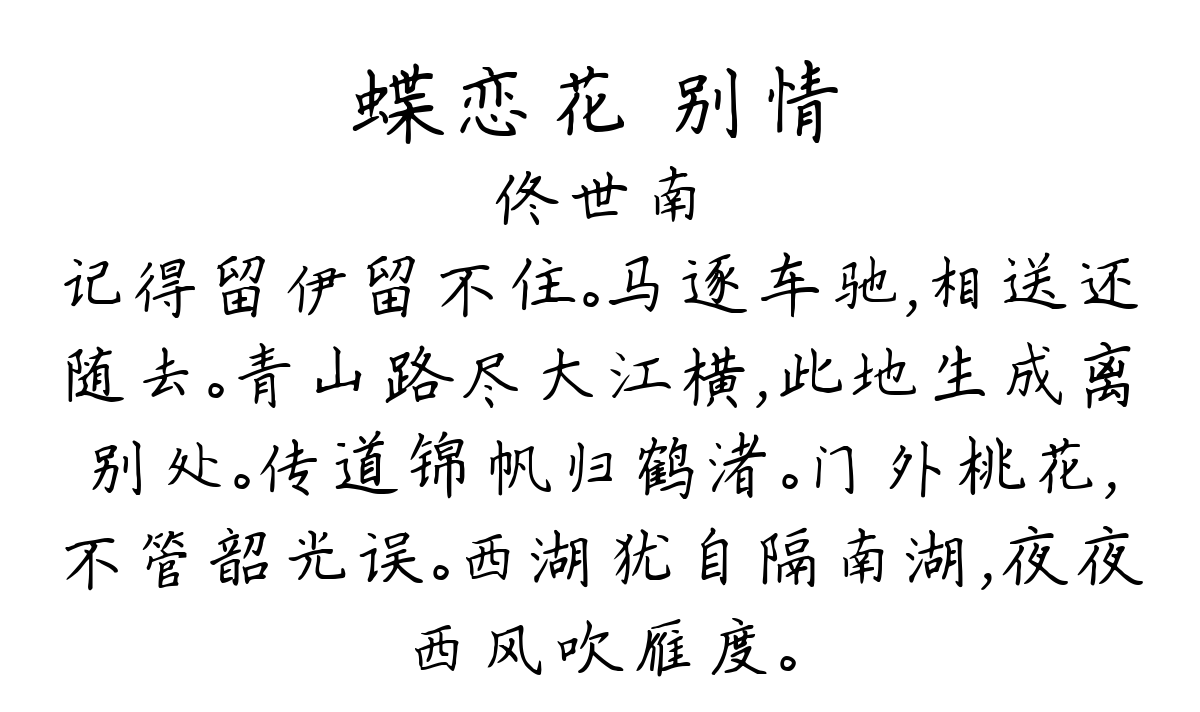 蝶恋花 别情
佟世南
记得留伊留不住。马逐车驰,相送还
随去。青山路尽大江横,此地生成离
别处。传道锦帆归鹤渚。门外桃花,
不管韶光误。西湖犹自隔南湖,夜夜
西风吹雁度。